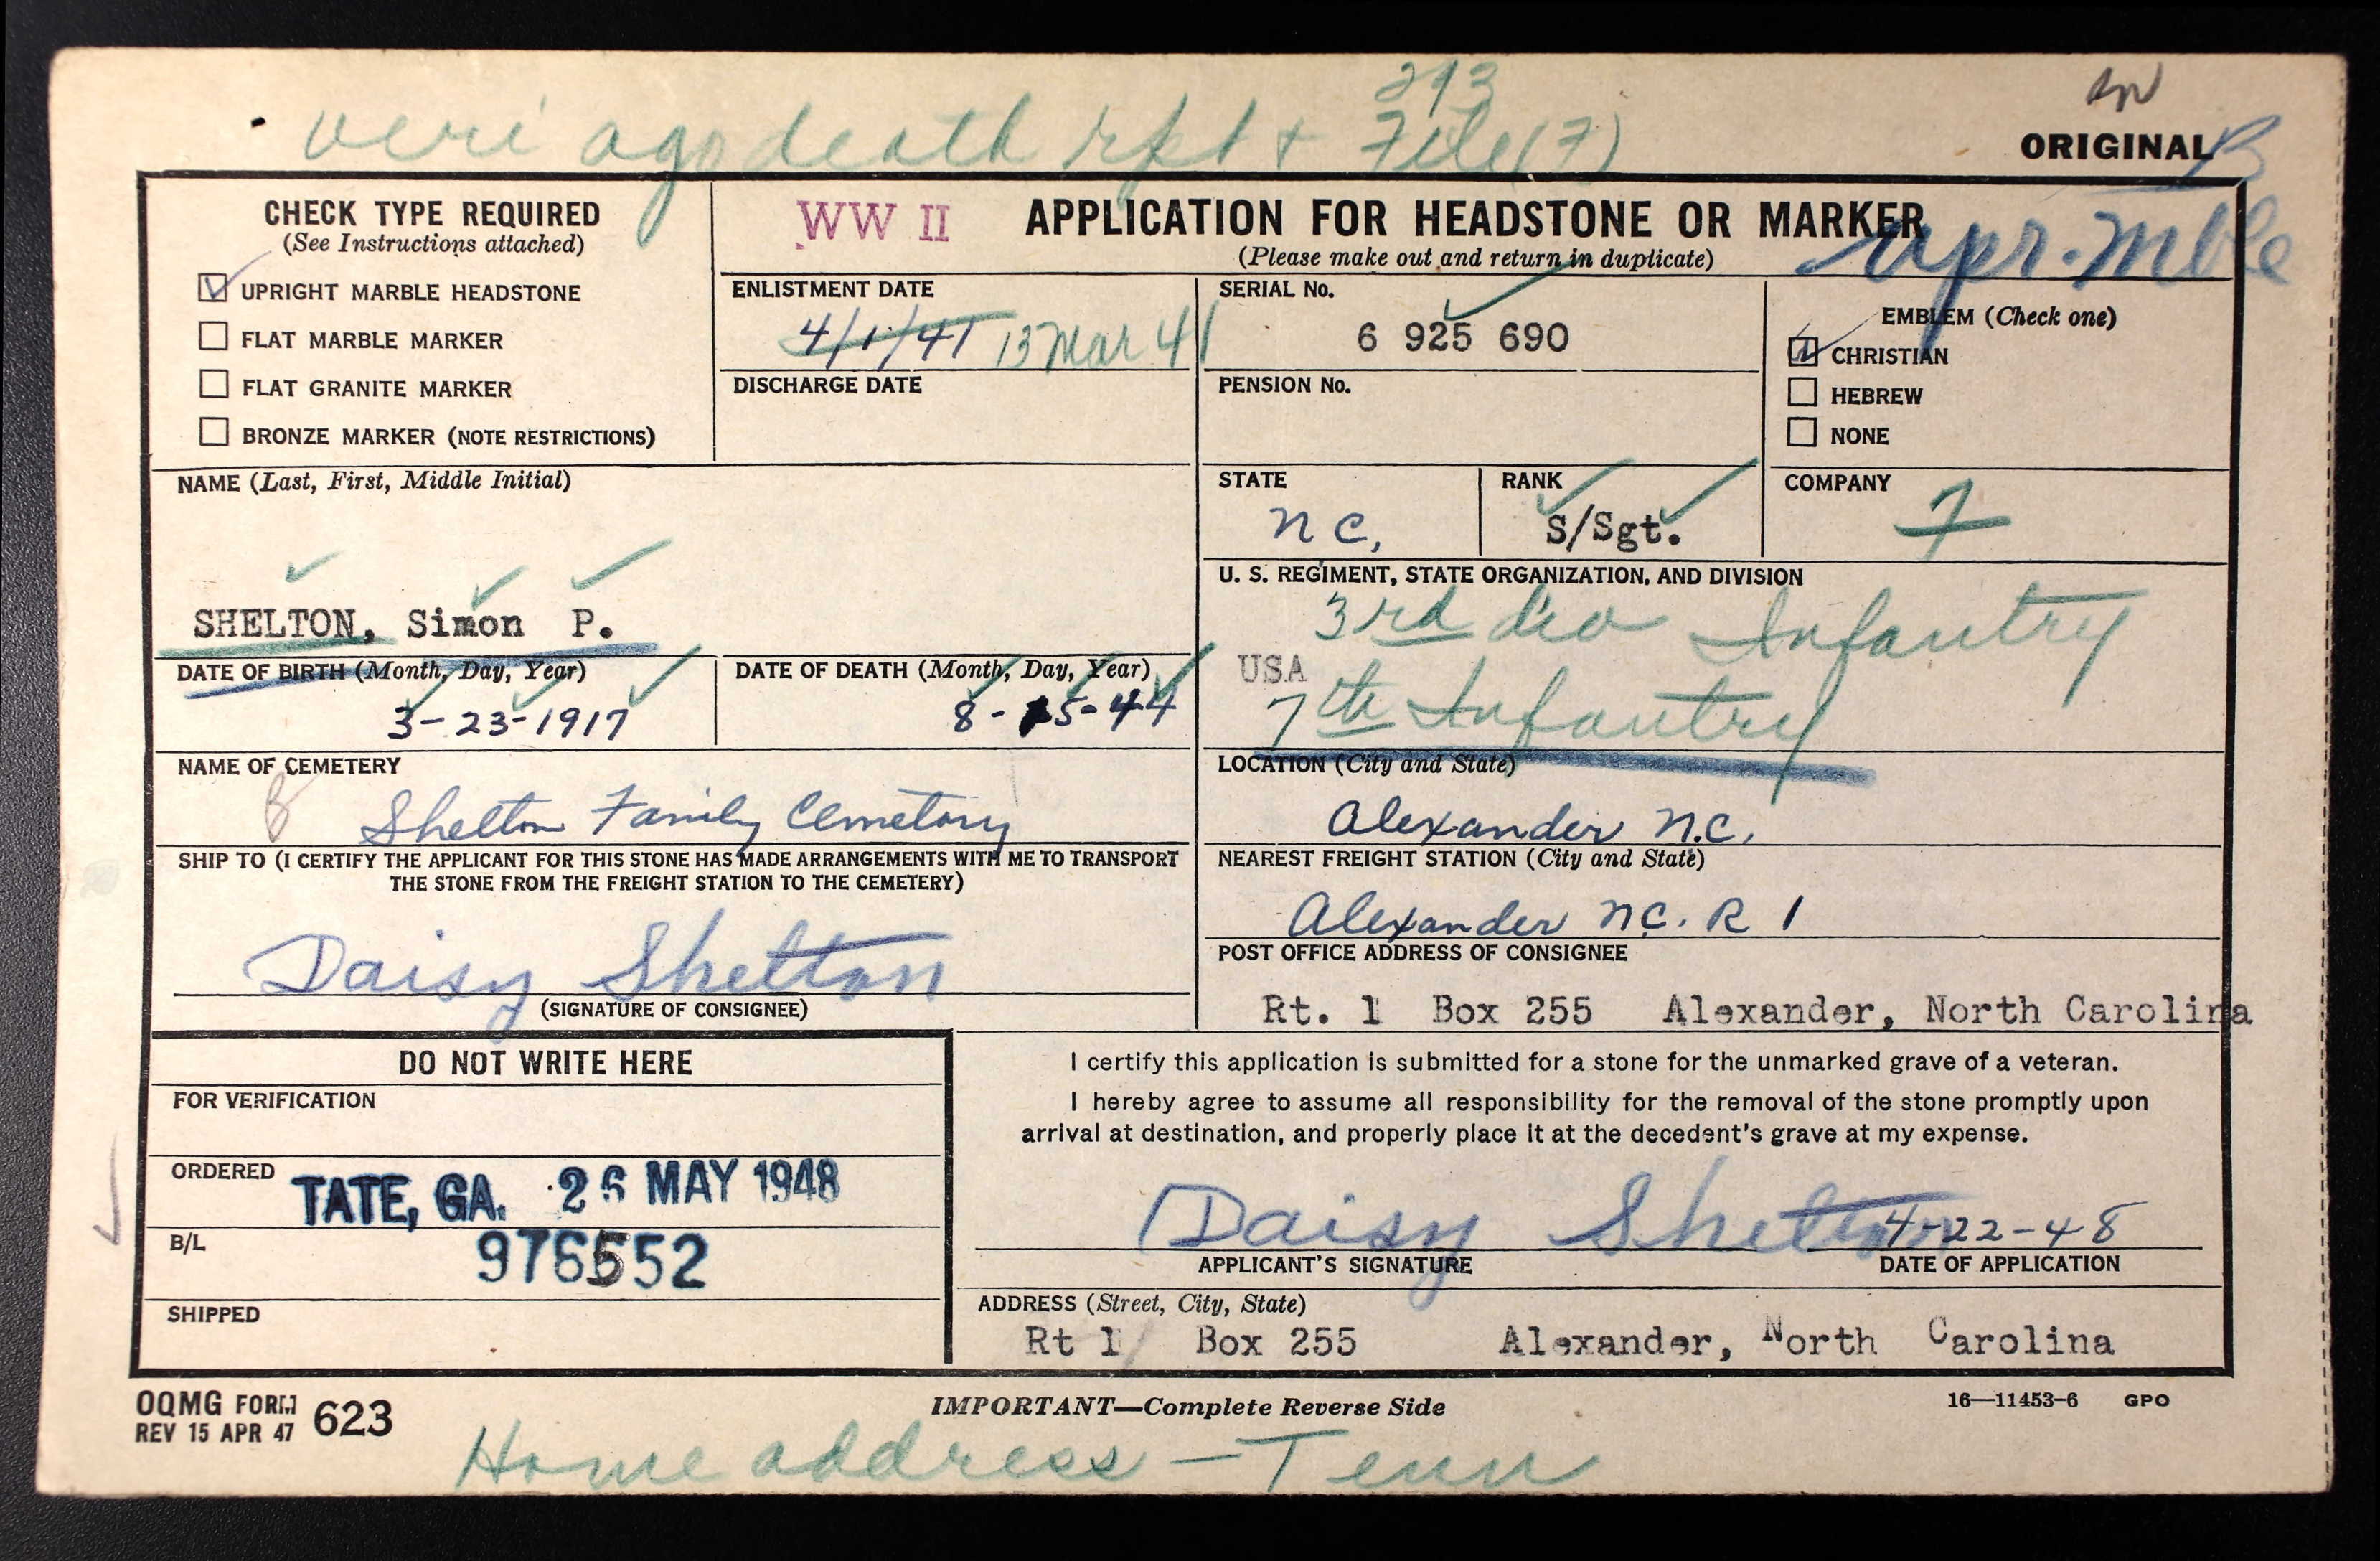 293
veri ago death rpt + File (7)
ORIGINAL
CHECK TYPE REQUIRED
(See Instructions attached)
UPRIGHT MARBLE HEADSTONE
FLAT MARBLE MARKER
FLAT GRANITE MARKER
BRONZE MARKER (NOTE RESTRICTIONS)
WW II
APPLICATION FOR HEADSTONE OR MARKER
(Please make out and return in duplicate)
upr. Mble
ENLISTMENT DATE
4/1/41 13 Mar 41
DISCHARGE DATE
SERIAL No.
6 925 690
PENSION No.
EMBLEM (Check one)
CHRISTIAN
HEBREW
NONE
NAME (Last, First, Middle Initial)
SHELTON, Simon P.
STATE
NC,
RANK
S/Sgt.
COMPANY
7
U. S. REGIMENT, STATE ORGANIZATION, AND DIVISION
3rd div Infantry
USA
7th Infantry
DATE OF BIRTH (Month, Day, Year)
3-23-1917
DATE OF DEATH (Month, Day, Year)
8-15-44
NAME OF CEMETERY
Shelton Family Cemetory
LOCATION (City and State)
Alexander N.C.
SHIP TO (I CERTIFY THE APPLICANT FOR THIS STONE HAS MADE ARRANGEMENTS WITH ME TO TRANSPORT
THE STONE FROM THE FREIGHT STATION TO THE CEMETERY)
Daisy Shelton
(SIGNATURE OF CONSIGNEE)
NEAREST FREIGHT STATION (City and State)
Alexander NC. R 1
POST OFFICE ADDRESS OF CONSIGNEE
Rt. 1 Box 255 Alexander, North Carolina
DO NOT WRITE HERE
FOR VERIFICATION
ORDERED
TATE, GA. 26 MAY 1948
B/L
976552
SHIPPED
I certify this application is submitted for a stone for the unmarked grave of a veteran.
I hereby agree to assume all responsibility for the removal of the stone promptly upon
arrival at destination, and properly place it at the decedent's grave at my expense.
Daisy Shelton 4-22-48
APPLICANT'S SIGNATURE
DATE OF APPLICATION
ADDRESS (Street, City, State)
Rt 1 Box 255 Alexander, North Carolina
OQMG FORM 623
REV 15 APR 47
IMPORTANT—Complete Reverse Side
16—11453-6 GPO
Home address - Tenn